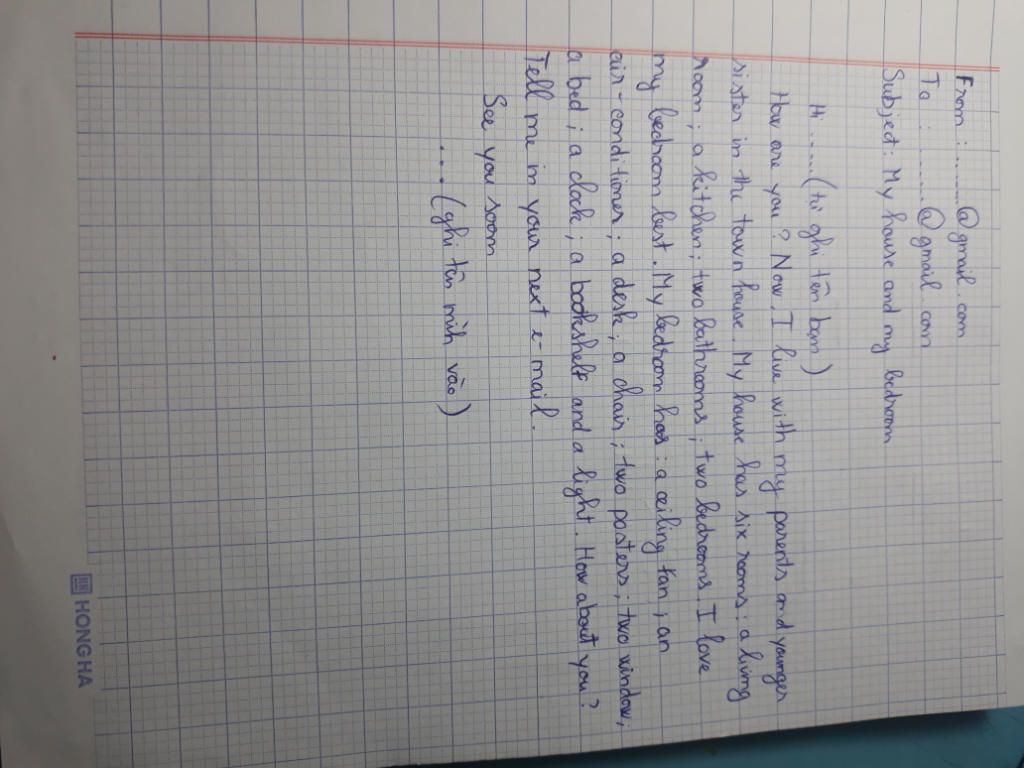 From : ........@gmail.com
To : ........@gmail.com
Subject : My house and my bedroom
Hi .....(tự ghi tên bạn)
How are you? Now, I live with my parents and younger
sister in the town house. My house has six rooms : a living
room ; a kitchen ; two bathrooms ; two bedrooms. I love
my bedroom best. My bedroom has : a ceiling fan ; an
air-conditioner ; a desk ; a chair ; two posters ; two window ;
a bed ; a clock ; a bookshelf and a light. How about you?
Tell me in your next e-mail.
See you soon
....(ghi tên mình vào)
HONGHA